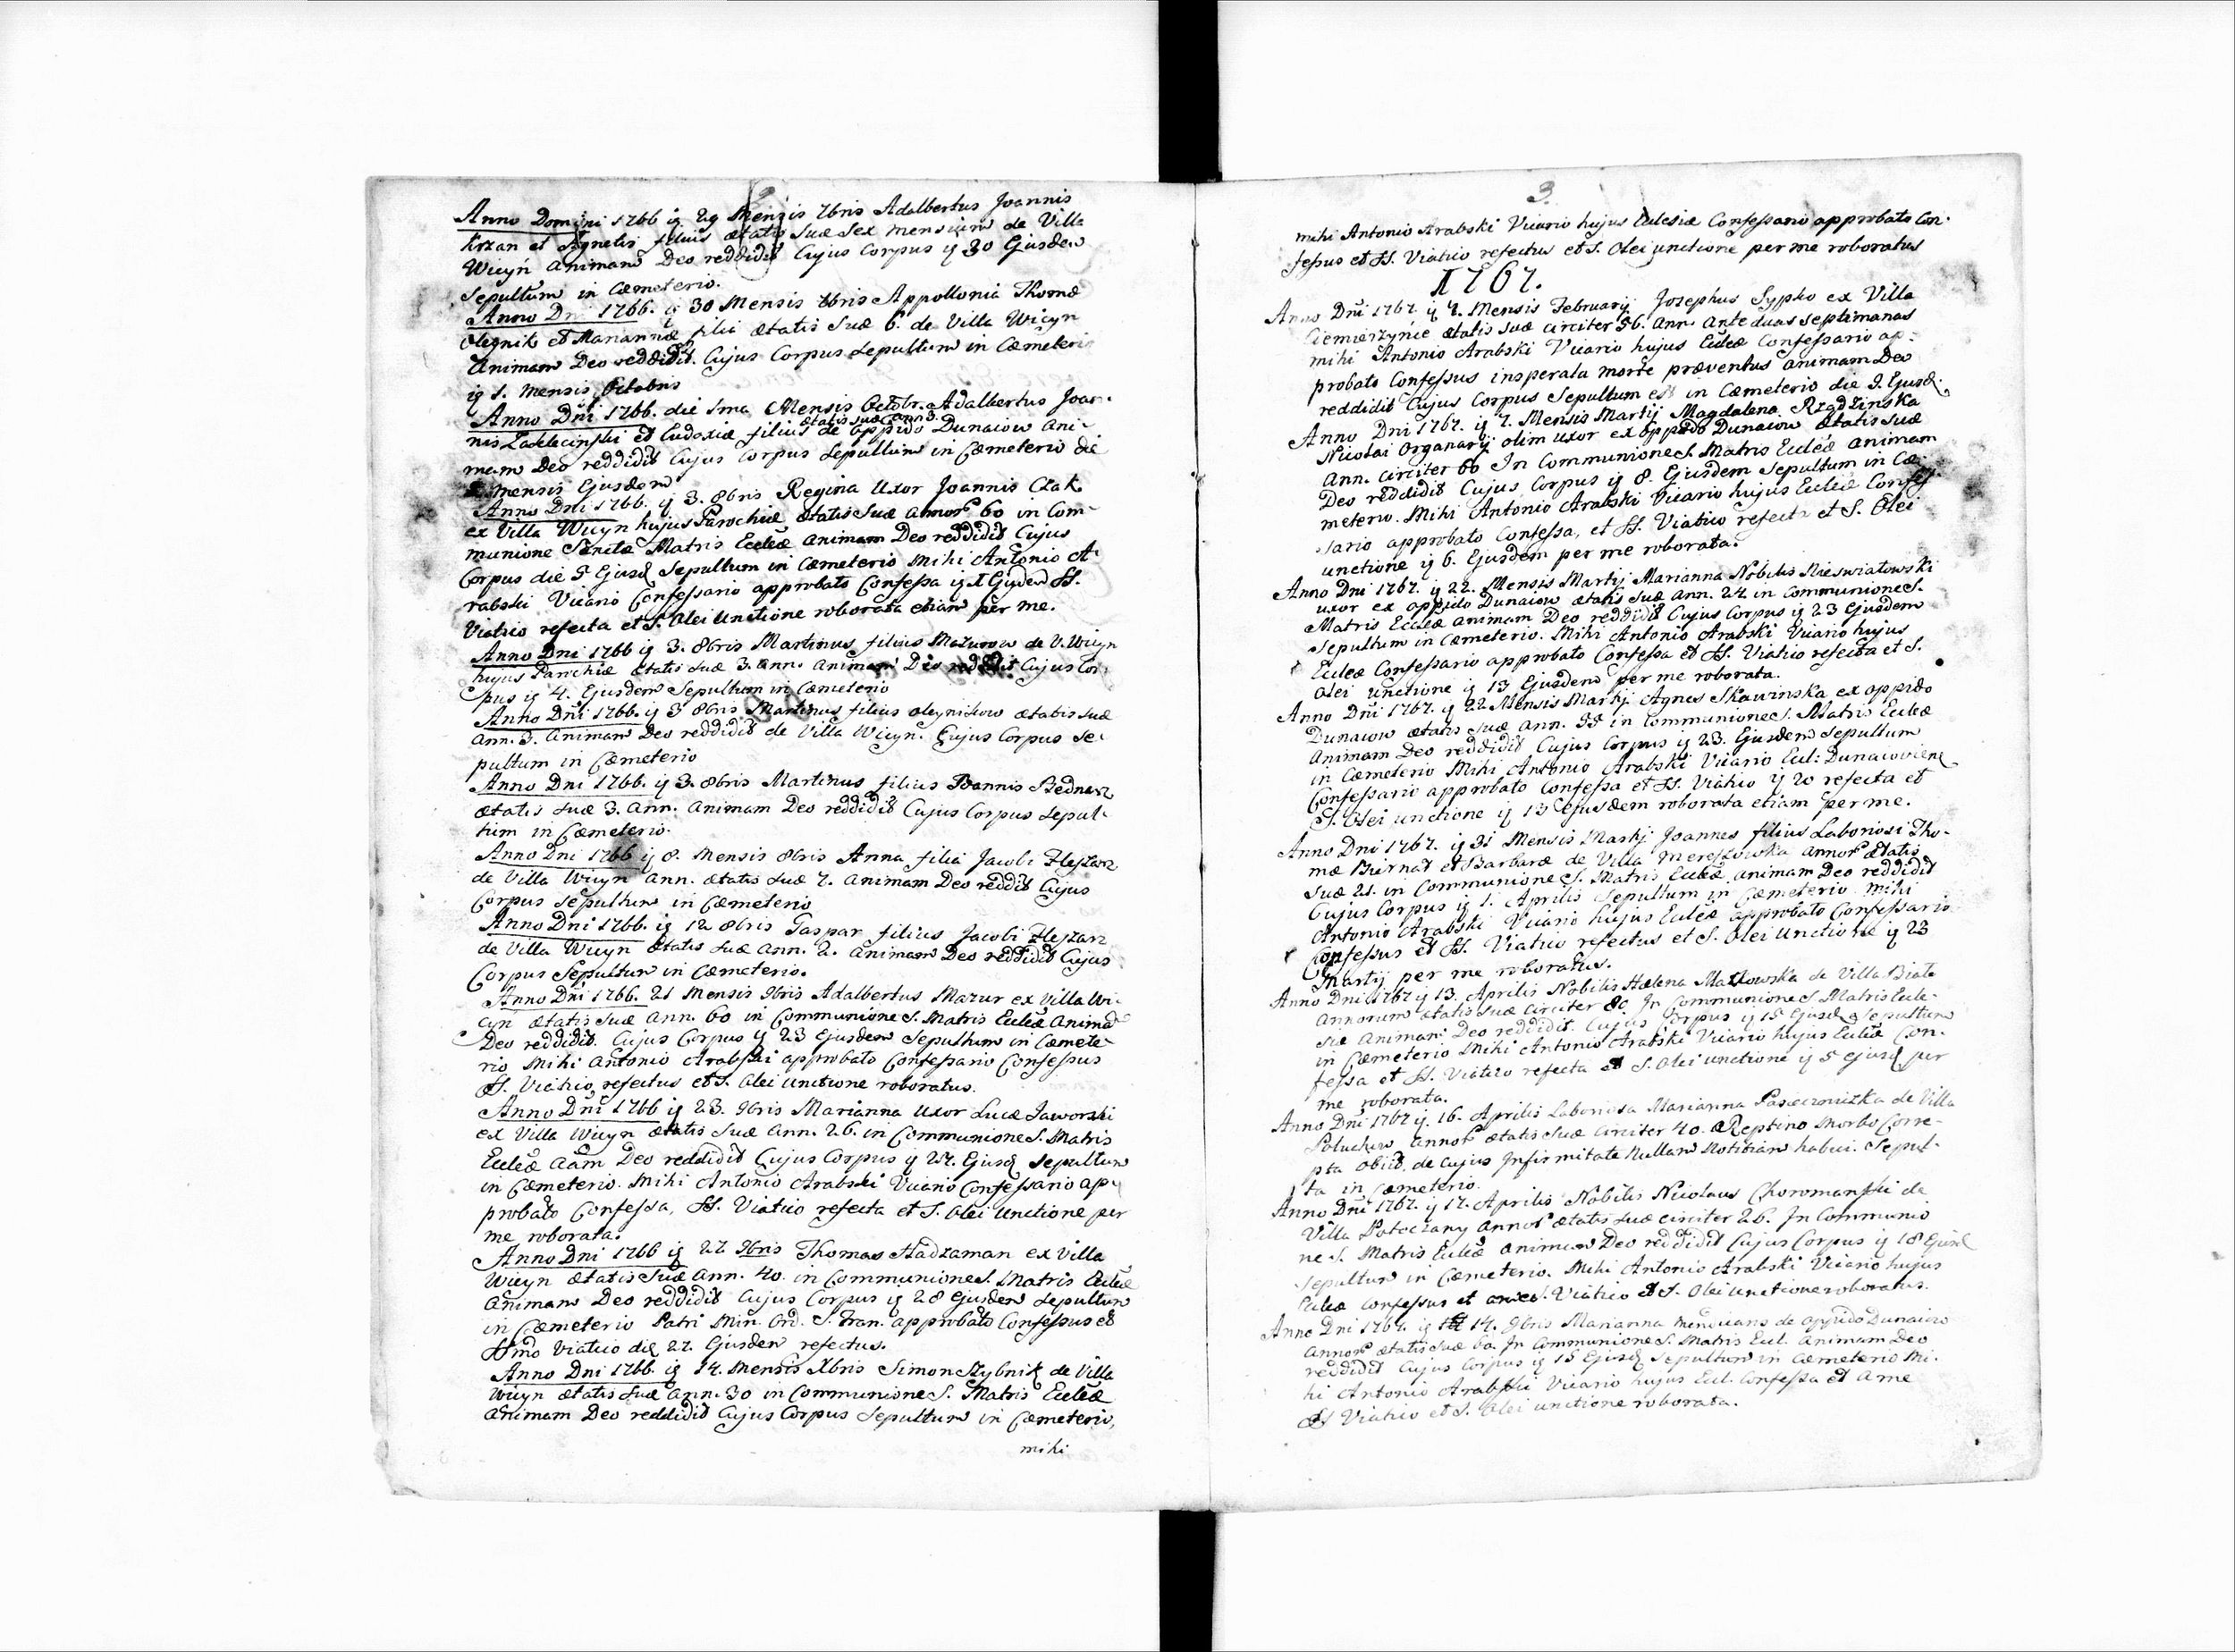 Anno Domini 1766 ij 29 Mensis 7bris Adalbertus Joannis
Krzan et Agnetis filius ætatis suæ sex mensium de Villa
Wicyń animam Deo reddidit Cujus Corpus ij 30 Ejusdem
Sepultum in Cæmeterio.
Anno Dni 1766. ij 30 Mensis 7bris Appollonia Thomæ
Olegnik et Mariannæ filia ætatis suæ 6. de Villa Wicyn
Animam Deo reddidit. Cujus Corpus sepultum in Cæmeterio
ij 1. Mensis Octobris
Anno Dni 1766. die 1ma Mensis Octobr. Adalbertus Joan-
ætatis suæ ann 3.
nis et Eudoxiæ filius de oppido Dunaiow ani-
mam Deo reddidit Cujus Corpus sepultum in Cæmeterio die
mensis Ejusdem
Anno Dni 1766. ij 3. 8bris Regina Uxor Joannis Czak
ex Villa Wicyn hujus Parochiæ ætatis suæ annor 60 in Com-
munione Sanctæ Matris Eccleæ animam Deo reddidit Cujus
Corpus die 5 Ejusd Sepultum in Cæmeterio Mihi Antonio A-
rabski Vicario Confessario approbato Confessa ij 1 Ejusdem SS.
Viatico refecta et S. Olei Unctione roborata etiam per me.
Anno Dni 1766 ij 3. 8bris Martinus filius Mazurow de V. Wicyn
hujus Parochiæ ætatis suæ 3. ann. animam Deo reddidit Cujus Cor-
pus ij 4. Ejusdem Sepultum in Cæmeterio
Anno Dni 1766. ij 3 8bris Martinus filius Oleynikow ætatis suæ
ann. 3. animam Deo reddidit de Villa Wicyn. Cujus Corpus se-
pultum in Cæmeterio
Anno Dni 1766. ij 3. 8bris Martinus filius Joannis Bednarz
ætatis suæ 3. ann. animam Deo reddidit Cujus Corpus sepul-
tum in Cæmeterio.
Anno Dni 1766 ij 8. Mensis 8bris Anna filia Jacobi Hejzarz
de Villa Wicyn ann. ætatis suæ 7. animam Deo reddit Cujus
Corpus sepultum in Cæmeterio
Anno Dni 1766. ij 12 8bris Gaspar filius Jacobi Hejzarz
de Villa Wicyn ætatis suæ ann. 2. animam Deo reddidit Cujus
Corpus Sepultum in Cæmeterio.
Anno Dni 1766. 21 Mensis 9bris Adalbertus Mazur ex Villa Wi-
cyn ætatis suæ ann. 60 in Communione S. Matris Eccleæ Animã
Deo reddidit. Cujus Corpus ij 23 Ejusdem Sepultum in Cæmete-
rio Mihi Antonio Arabski approbato Confessario Confessus
SS. Viatico refectus et S. Olei Unctione roboratus.
Anno Dni 1766 ij 23. 9bris Marianna Uxor Lucæ Jaworski
ex Villa Wicyn ætatis suæ ann. 26. in Communione S. Matris
Eccleæ aãm Deo reddidit Cujus Corpus ij 24. Ejusd sepultum
in Cæmeterio. Mihi Antonio Arabski Vicario Confessario ap-
probato Confessa, SS. Viatico refecta et S. Olei Unctione per
me roborata.
Anno Dni 1766 ij 27 9bris Thomas Hadzaman ex Villa
Wicyn ætatis suæ ann. 40. in Communione S. Matris Eccleæ
animam Deo reddidit Cujus Corpus ij 28 Ejusdem sepultum
in Cæmeterio Patri Min. Ord. S. Fran. approbato Confessus et
SSmo Viatico die 27. Ejusdem refectus.
Anno Dni 1766. ij 14. Mensis Xbris Simon Szybnik de Villa
Wicyn ætatis suæ ann. 30 in Communione S. Matris Eccleæ
animam Deo reddidit Cujus Corpus Sepultum in Cæmeterio,
mihi
3.
mihi Antonio Arabski Vicario hujus Eclesiæ Confessario approbato Con-
fessus et SS. Viatico refectus et S. Olei unctione per me roboratus
1767.
Anno Dni 1767. ij 7. Mensis Februarij Josephus Sypko ex Villa
Ciemierzyńce ætatis suæ circiter 56. ann. ante duas septimanas
mihi Antonio Arabski Vicario hujus Eccleæ Confessario ap-
probato Confessus insperata morte præventus animam Deo
reddidit Cujus Corpus Sepultum est in Cæmeterio die 9. Ejusd.
Anno Dni 1767. ij 7. Mensis Martij Magdalena Rządzinska
Nicolai Organarij olim uxor ex oppido Dunaiow ætatis suæ
ann. circiter 60 In Communione S. Matris Eccleæ animam
Deo reddidit Cujus Corpus ij 8. Ejusdem Sepultum in Cæ-
meterio. Mihi Antonio Arabski Vicario hujus Eccleæ Confes-
sario approbato Confessa, et SS. Viatico refecta et S. Olei
unctione ij 6. Ejusdem per me roborata.
Anno Dni 1767. ij 22. Mensis Martij Marianna Nobilis Nieswiatowski
uxor ex oppido Dunaiow ætatis suæ ann. 24 in Communione S.
Matris Eccleæ animam Deo reddidit Cujus Corpus ij 23 Ejusdem
Sepultum in Cæmeterio. Mihi Antonio Arabski Vicario hujus
Eccleæ Confessario approbato Confessa et SS. Viatico refecta et S.
Olei unctione ij 13 Ejusdem per me roborata.
Anno Dni 1767. ij 22 Mensis Martij Agnes Skawinska ex oppido
Dunaiow ætatis suæ ann. 35 in Communione S. Matris Eccleæ
animam Deo reddidit Cujus Corpus ij 23. Ejusdem sepultum
in Cæmeterio Mihi Antonio Arabski Vicario Eccl: Dunaiovien
Confessario approbato Confessa et SS. Viatico ij 20 refecta et
S. Olei unctione ij 13 Ejusdem roborata etiam per me.
Anno Dni 1767. ij 31 Mensis Martij Joannes filius Laboriosi Tho-
mæ Biernat et Barbaræ de Villa Mereszowka annor ætatis
suæ 21. in Communione S. Matris Eccleæ animam Deo reddidit
Cujus Corpus ij 1. Aprilis Sepultum in Cæmeterio mihi
Antonio Arabski Vicario hujus Eccleæ approbato Confessario
Confessus et SS. Viatico refectus et S. Olei Unctione ij 23
Martij per me roboratus.
Anno Dni 1767 ij 13. Aprilis Nobilis Hælena Matkowska de Villa Biała
Annorum ætatis suæ circiter 80. In Communione S. Matris Eccle-
siæ Animam Deo reddidit. Cujus Corpus ij 15 Ejusd Sepultum
in Cæmeterio Mihi Antonio Arabski Vicario hujus Eccleæ Con-
fessa et SS. Viatico refecta et S. Olei unctione ij 5 ejusd per
me roborata.
Anno Dni 1767 ij. 16. Aprilis Laboriosa Marianna de Villa
Poluchow annor ætatis suæ circiter 40. Reptino Morbo Corre-
pta obiit de cujus Infirmitate Nullam Notitiam habui. Sepul-
ta in Cæmeterio.
Anno Dni 1767. ij 17. Aprilis Nobilis Nicolaus Choromanski de
Villa Potoczany annor ætatis suæ circiter 26. In Communio
ne S. Matris Eccleæ animam Deo reddidit Cujus Corpus ij 18 Ejusd
Sepultum in Cæmeterio. Mihi Antonio Arabski Vicario hujus
Eccleæ Confessus et S. Viatico et S. Olei unctione roboratus.
Anno Dni 1767. ij 14. 9bris Marianna mendicans de oppido Dunaiow
annor ætatis suæ 60. In Communione S. Matris Eccl. animam Deo
reddidit Cujus Corpus ij 15 Ejusd Sepultum in Cæmeterio Mi-
hi Antonio Arabski Vicario hujus Eccl. Confessa et a me
SS Viatico et S. Olei unctione roborata.